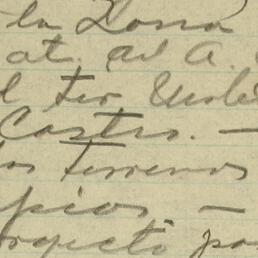 la Zona
at. al A.
l Fer
Castro. —
os terrenos
pios, —
royecto pa